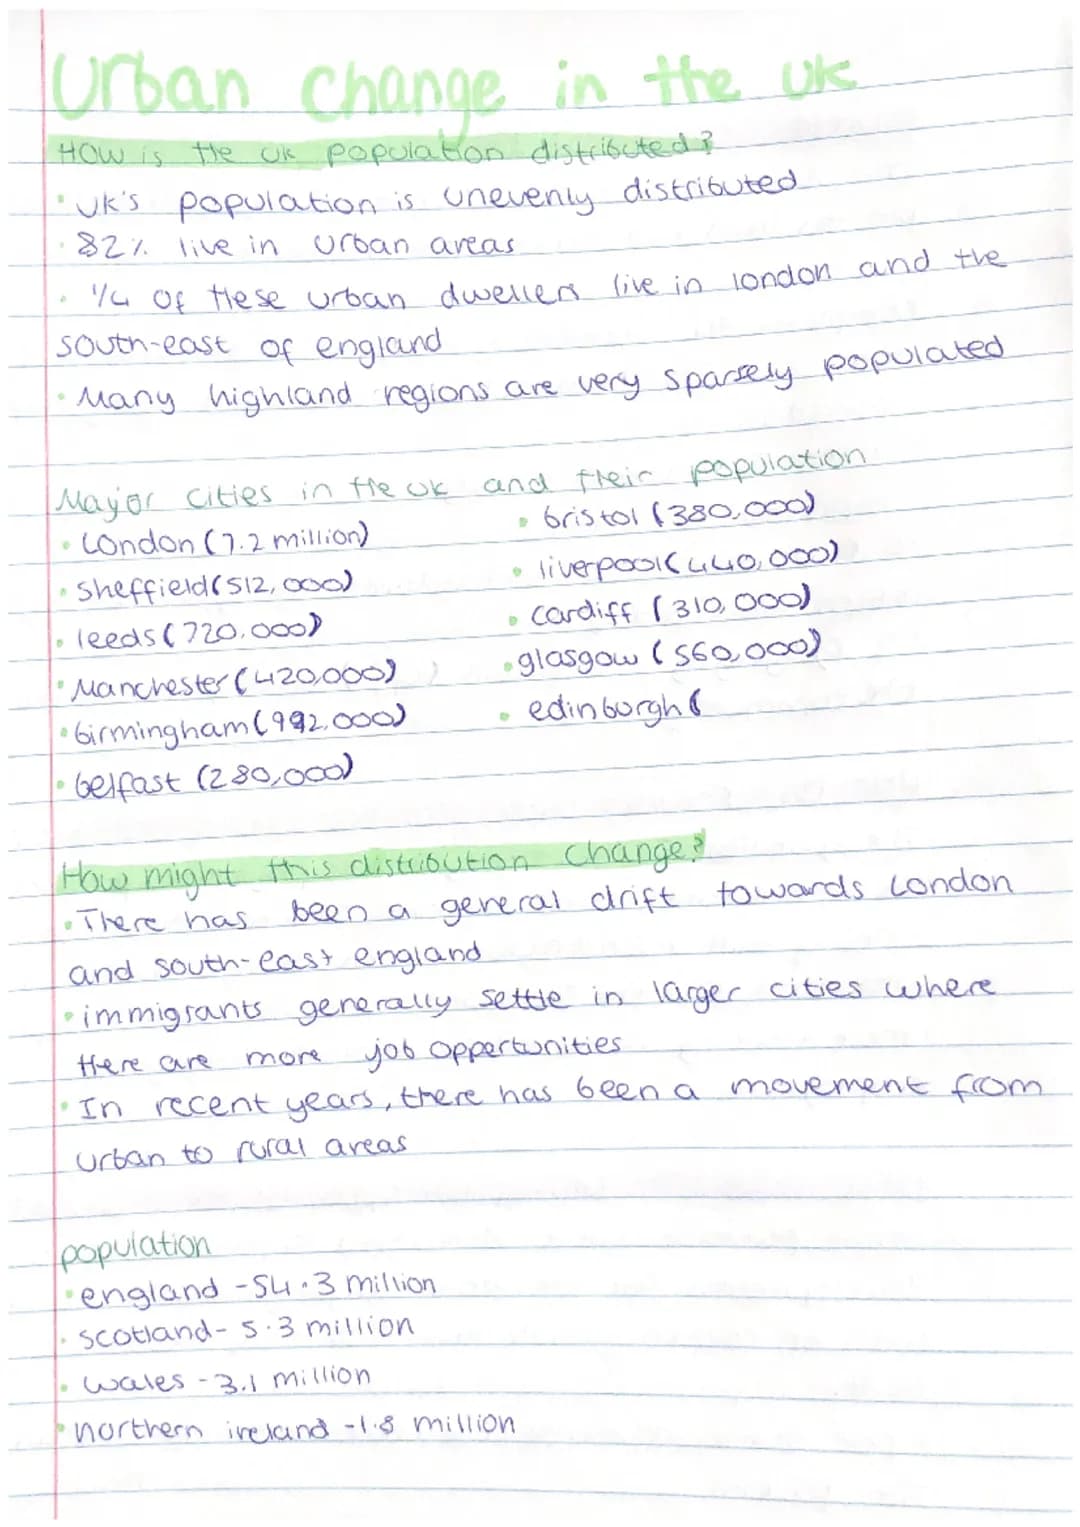 Urban change in the UK
How is the UK population distributed?
• UK's population is unevenly distributed
• 82% live in urban areas
• 1/4 of these urban dwellers live in london and the
south-east of england
• Many highland regions are very sparsely populated
Major cities in the UK and their population
• London (7.2 million)
• bristol (380,000)
• Sheffield (512,000)
• liverpool (440,000)
• leeds (720,000)
• cardiff (310,000)
• Manchester (420,000)
• glasgow (560,000)
• birmingham (992,000)
• edinburgh (
• belfast (280,000)
How might this distribution change?
• There has been a general drift towards London
and south-east england
• immigrants generally settle in larger cities where
there are more job oppertunities
• In recent years, there has been a movement from
urban to rural areas
population
• england - 54.3 million
• scotland - 5.3 million
• wales - 3.1 million
• northern ireland - 1.8 million